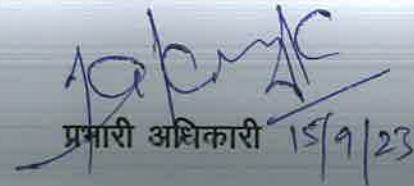 प्रभारी अधिकारी 15/9/23